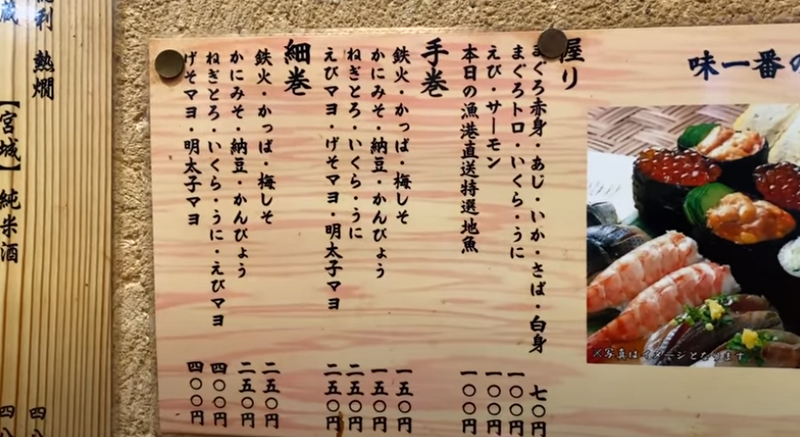 味一番の
※写真はイメージとなります。
握り
まぐろ赤身・あじ・いか・さば・白身 七〇円
まぐろトロ・いくら・うに 一〇〇円
えび・サーモン 一〇〇円
本日の漁港直送特選地魚 一〇〇円
手巻
鉄火・かっぱ・梅しそ 一五〇円
かにみそ・納豆・かんぴょう 一五〇円
ねぎとろ・いくら・うに 二五〇円
えびマヨ・げそマヨ・明太子マヨ 二五〇円
細巻
鉄火・かっぱ・梅しそ 二五〇円
かにみそ・納豆・かんぴょう 二五〇円
ねぎとろ・いくら・うに・えびマヨ 四〇〇円
げそマヨ・明太子マヨ 四〇〇円
熱燗 四八
蔵【宮城】純米酒 四八